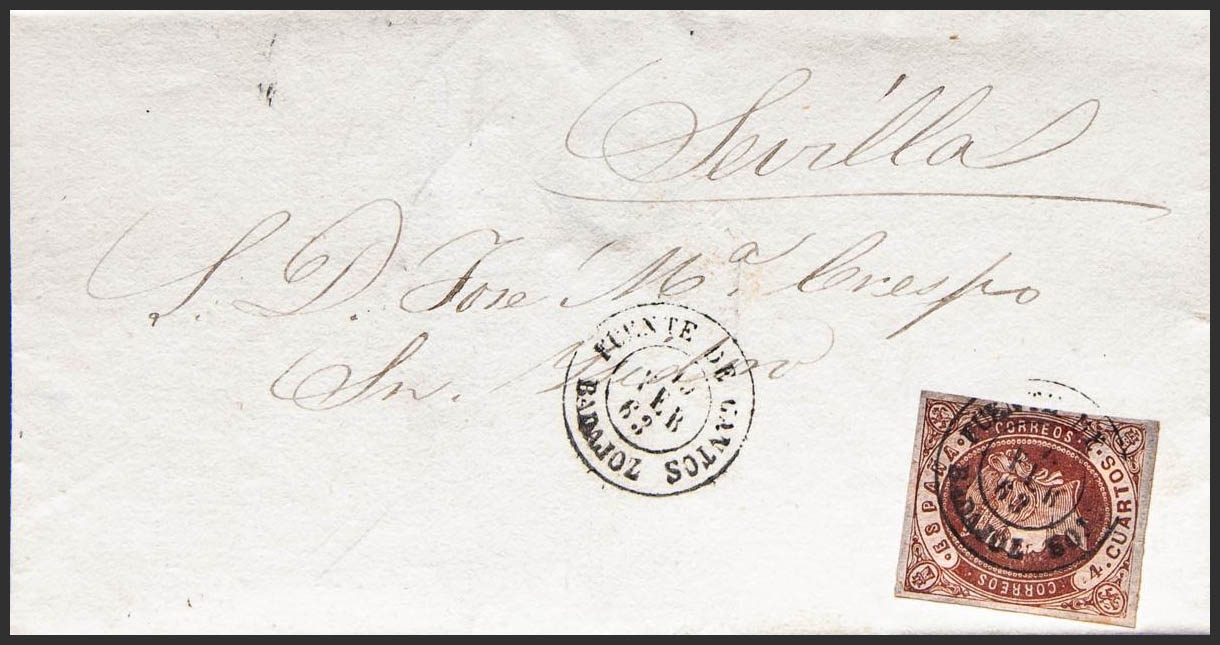 Sevilla
S. D. Jose M.ª Crespo
Sn.
FUENTE DE CANTOS
FEB
63
BADAJOZ
CORREOS
ESPAÑA
4 CUARTOS
CORREOS
FUENTE DE
FEB
63
BADAJOZ